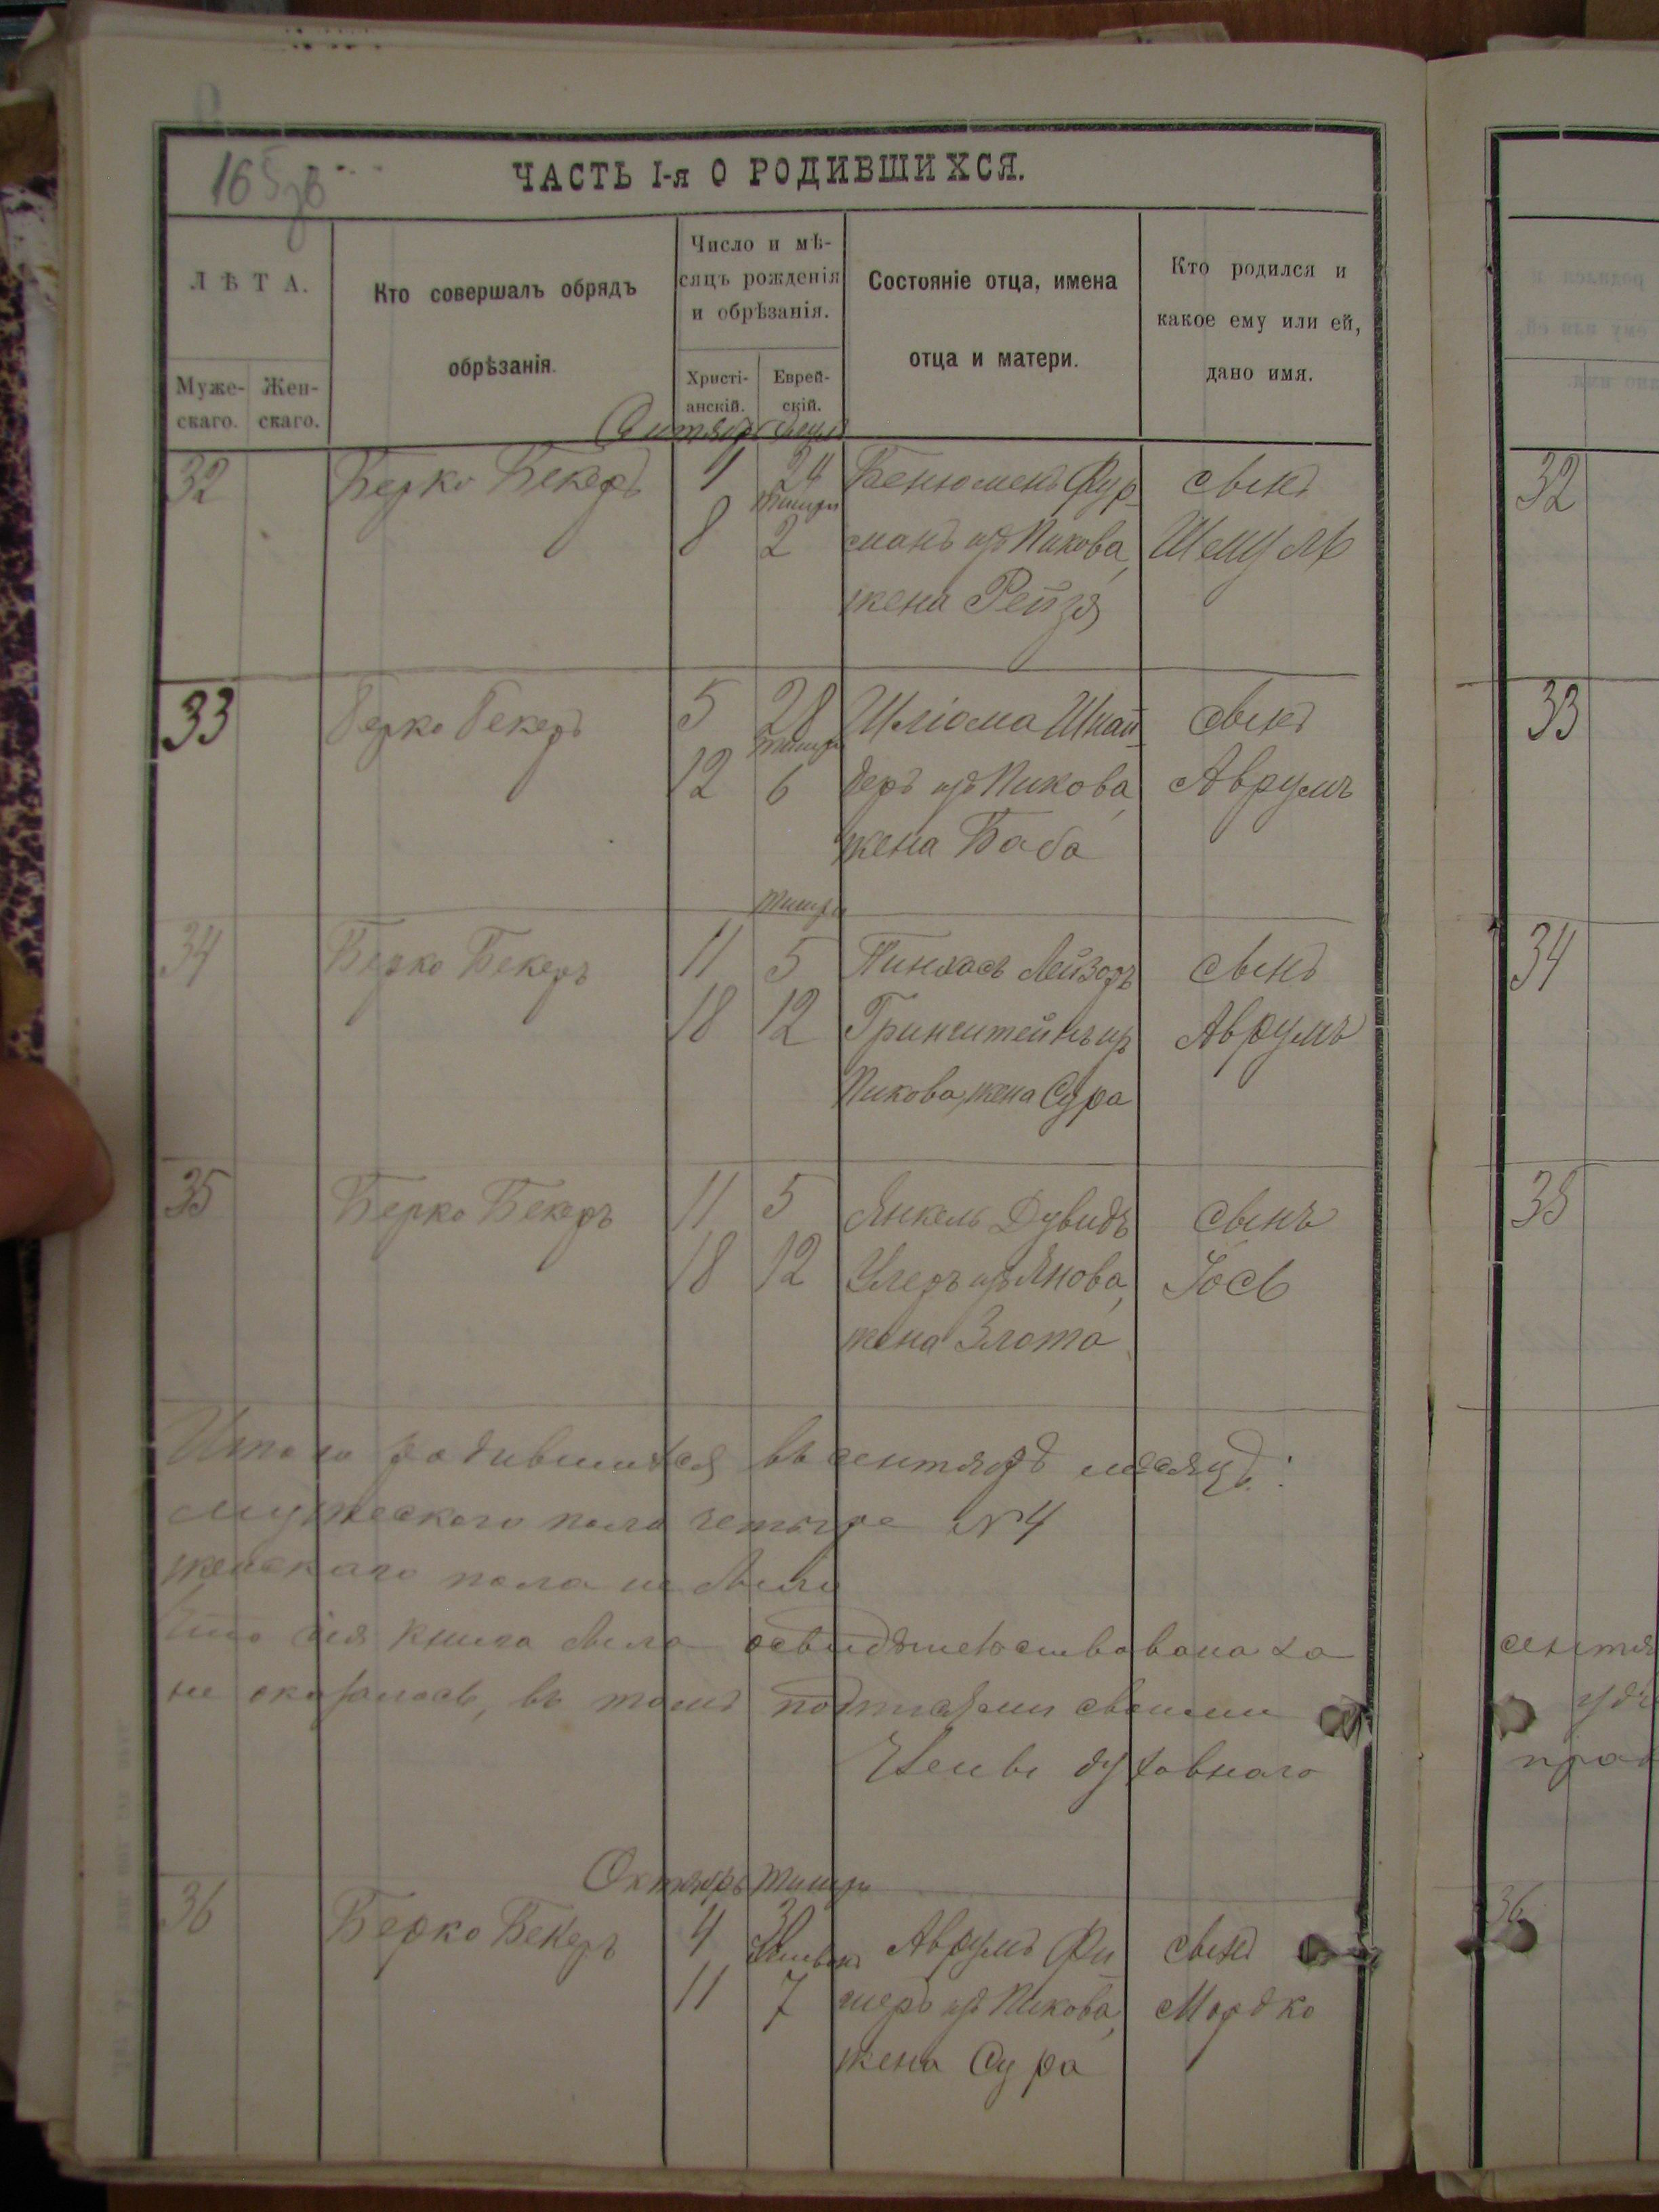 ЧАСТЬ I-я О РОДИВШИХСЯ.
ЛѢТА.
Муже-
скаго.
Жен-
скаго.
Кто совершалъ обрядъ
обрѣзанія.
Число и мѣ-
сяцъ рожденія
и обрѣзанія.
Христі-
анскій.
Еврей-
скій.
Состояніе отца, имена
отца и матери.
Кто родился и
какое ему или ей,
дано имя.
32 Берко Бекеръ 1 24 Бенюменъ Фур-
тишри
8 2 манъ изъ Пикова,
жена Рейзя
сынъ
Шмуль
32
33 Берко Бекеръ 5 28 Шліома Шнай-
тишри
12 6 деръ изъ Пикова,
жена Баба
сынъ
Аврумъ
33
тишри
34 Берко Бекеръ 11 5 Пинхасъ Лейзоръ
18 12 Гринштейнъ изъ
Пикова, жена Сура
сынъ
Аврумъ
34
35 Берко Бекеръ 11 5 Янкель Дувидъ
18 12 изъ Янова,
жена Злота
сынъ
Іось
35
Итого родившихся въ сентябрѣ месяцѣ:
мужескаго пола четыре №4
женскаго пола не было
Что сія книга была освидѣтельствована
не оказалось, въ томъ подписями своими
духовнаго
Октябрь тишри
36 Берко Бекеръ 4 30 Аврумъ Фи
11 7 шеръ изъ Пикова,
жена Сура
сынъ
Мордко
36